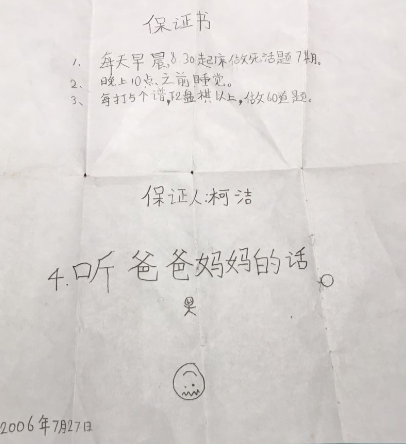 保证书
1、每天早晨,8 30起床做死活题7题。
2、晚上10点、之前睡觉。
3、每打5个谱,下2盘棋以上,做60道题。
保证人:柯洁
4.听爸爸妈妈的话。
2006年7月27日